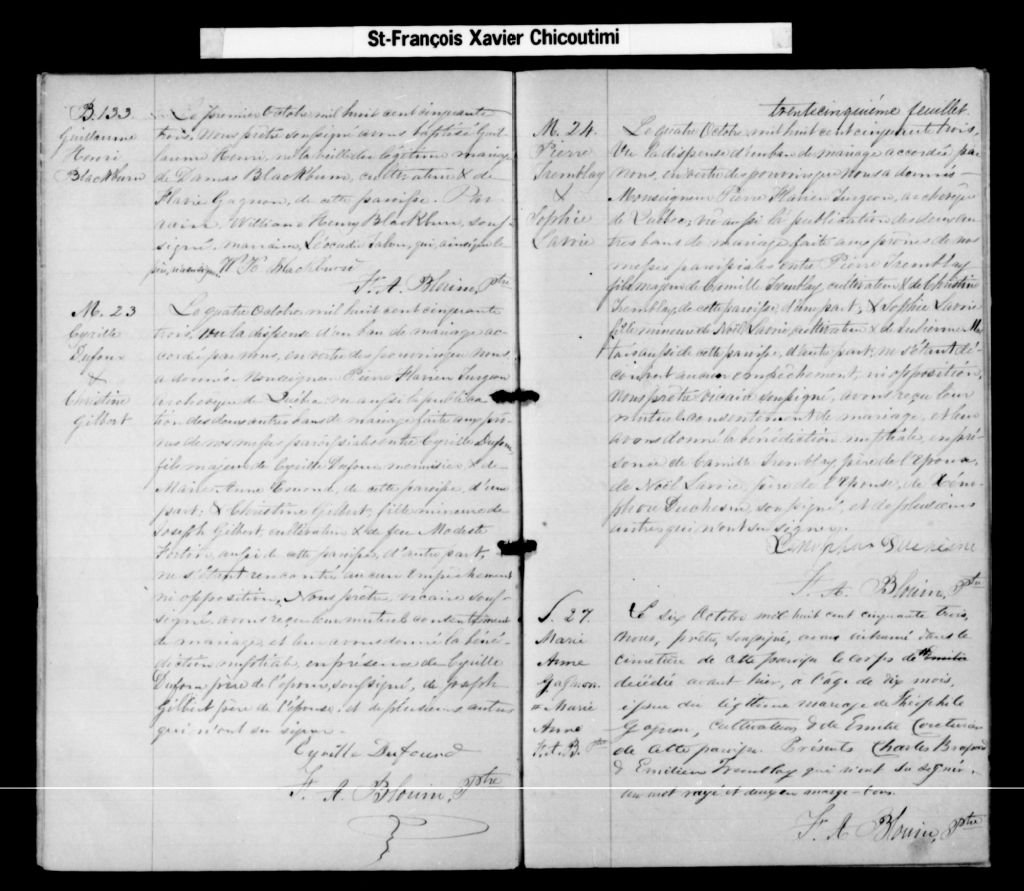 St-François Xavier Chicoutimi
B. 133
Guillaume
Henri
Blackburn
Le premier Octobre mil huit cent cinquante
trois, Nous prêtre soussigné avons baptisé Guil
laume Henri, né la veille du légitime mariage
de Damas Blackburn, cultivateur & de
Flavie Gagnon, de cette paroisse. Par-
rain, William Henry Blackburn, sous-
signé, marraine, Léocadie qui, ainsi que le
père,
W H Blackburn
F. A. Blouin, Ptre
M. 23
Cyrille
Dufour
&
Christine
Gilbert
Le quatre Octobre mil huit cent cinquante
trois, vu la dispense d'un ban de mariage ac-
cordée par nous, en vertu des pouvoirs que nous
a donnés Monseigneur Pierre Flavien Turgeon
archevêque de Québec, vu aussi la publica
tion des deux autres bans de mariage faite aux prô-
nes de nos messes paroissiales entre Cyrille Dufour,
fils majeur de Cyrille Dufour menuisier & de
Marie Anne de cette paroisse, d'une
part; & Christine Gilbert, fille mineure de
Joseph Gilbert, cultivateur & de feu Modeste
Fortin, aussi de cette paroisse, d'autre part,
ne s'étant rencontré aucun empêchement
ni opposition, Nous prêtre, vicaire sous-
signé, avons reçu leur mutuel consentement
de mariage et leur avons donné la béné-
diction nuptiale, en présence de Cyrille
Dufour père de l'époux, soussigné, de Joseph
Gilbert père de l'épouse, et de plusieurs autres
qui n'ont su signer.
Cyrille Dufour
F. A. Blouin, Ptre
trentecinquième feuillet.
M. 24.
Pierre
Tremblay
&
Sophie
Lavoie
Le quatre Octobre, mil huit cent cinquante trois,
Vu la dispense d'un ban de mariage accordée par
nous, en vertu des pouvoirs que nous a donnés
Monseigneur Pierre Flavien Turgeon, archevêque
de Québec; vu aussi la publication des deux au
tres bans de mariage faite aux prônes de nos
messes paroissiales entre Pierre Tremblay
fils majeur de Camille Tremblay cultivateur & de Christine
Tremblay de cette paroisse, d'une part, & Sophie Lavoie
fille mineure de Noël Lavoie cultivateur & de Julienne
aussi de cette paroisse, d'autre part, ne s'étant dé-
couvert aucun empêchement, ni opposition,
Nous prêtre vicaire soussigné, avons reçu leur
mutuel consentement de mariage, et leur
avons donné la bénédiction nuptiale, en pré-
sence de Camille Tremblay père de l'époux,
de Noël Lavoie père de l'épouse, de
Duchesne, soussigné, et de plusieurs
autres qui n'ont su signer.
F. A. Blouin, Ptre
S. 27
Marie
Anne
Gagnon
Marie
Anne
F. A. B. Ptre
Le six Octobre mil huit cent cinquante trois,
Nous, prêtre, soussigné, avons inhumé dans le
cimetière de cette paroisse le corps de
décédée avant hier, à l'âge de dix mois,
issue du légitime mariage de Théophile
Gagnon, cultivateur & de Emilie
de cette paroisse. Présents Charles
& Emilien Tremblay qui n'ont su signer.
un mot rayé et deux en marge bons.
F. A. Blouin, Ptre